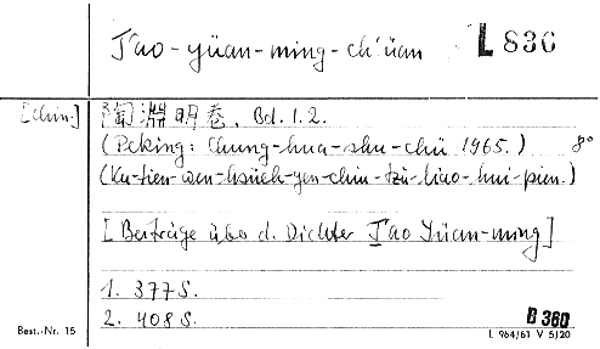 T'ao-yüan-ming-ch'üan
L 836
[chin.] 陶淵明卷. Bd. 1.2.
(Peking: Chung-hua-shu-chü 1965.) 8°
(Ku-tien-wen-hsüeh-yen-chiu-tzu-liao-hui-pien.)
[Beiträge über d. Dichter T'ao Yüan-ming]
1. 377 S.
2. 408 S.
B 360
Best.-Nr. 15
L 964/61 V 5/20